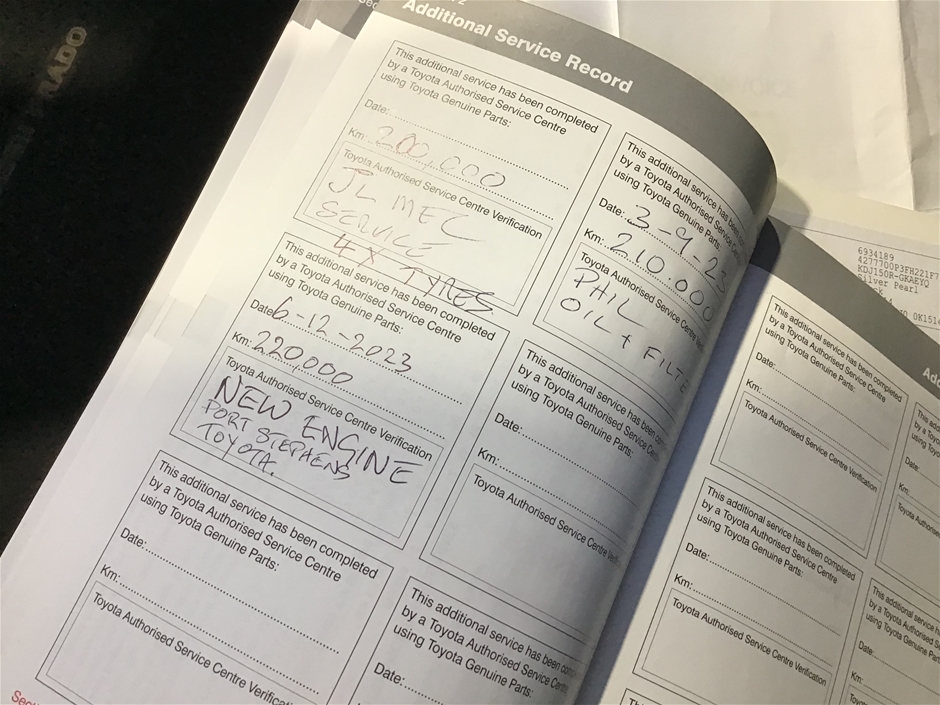 Additional Service Record
This additional service has been completed
by a Toyota Authorised Service Centre
using Toyota Genuine Parts:
Date:
Km: 200,000
Toyota Authorised Service Centre Verification
JL MEC
SERVICE
4X TYRES
This additional service has been
by a Toyota Authorised Service
using Toyota Genuine Parts:
Date: 3-9-23
Km: 210.000
Toyota Authorised Service Centre
PHIL
OIL + FILTE
This additional service has been completed
by a Toyota Authorised Service Centre
using Toyota Genuine Parts:
Date 6-12-2023
Km: 220,000
Toyota Authorised Service Centre Verification
NEW ENGINE
PORT STEPHENS
TOYOTA.
This additional service has been
by a Toyota Authorised Service
using Toyota Genuine Parts:
Date:
Km:
Toyota Authorised Service Centre
This additional service has been completed
by a Toyota Authorised Service Centre
using Toyota Genuine Parts:
Date:
Km:
Toyota Authorised Service Centre Verificati
This additional service has been
by a Toyota Authorised Service
using Toyota Genuine
Date:
6934189
4277700P3FH221F7
KDJ150R-GKAEYQ
Silver Pearl
This additional service has been completed
by a Toyota Authorised Service Centre
using Toyota Genuine Parts:
Date:
Km:
Toyota Authorised Service Centre Verification
This additional service has been completed
by a Toyota Authorised Service Centre
using Toyota Genuine Parts:
Date:
Km:
Toyota Authorised Service Centre Verification
This additional service has been completed
by a Toyota Authorised
using Toyota
Date:
Km:
Toyota Authorised
This additional
by a Toyota Authorised
using Toyota Genuine
Date:
Km: